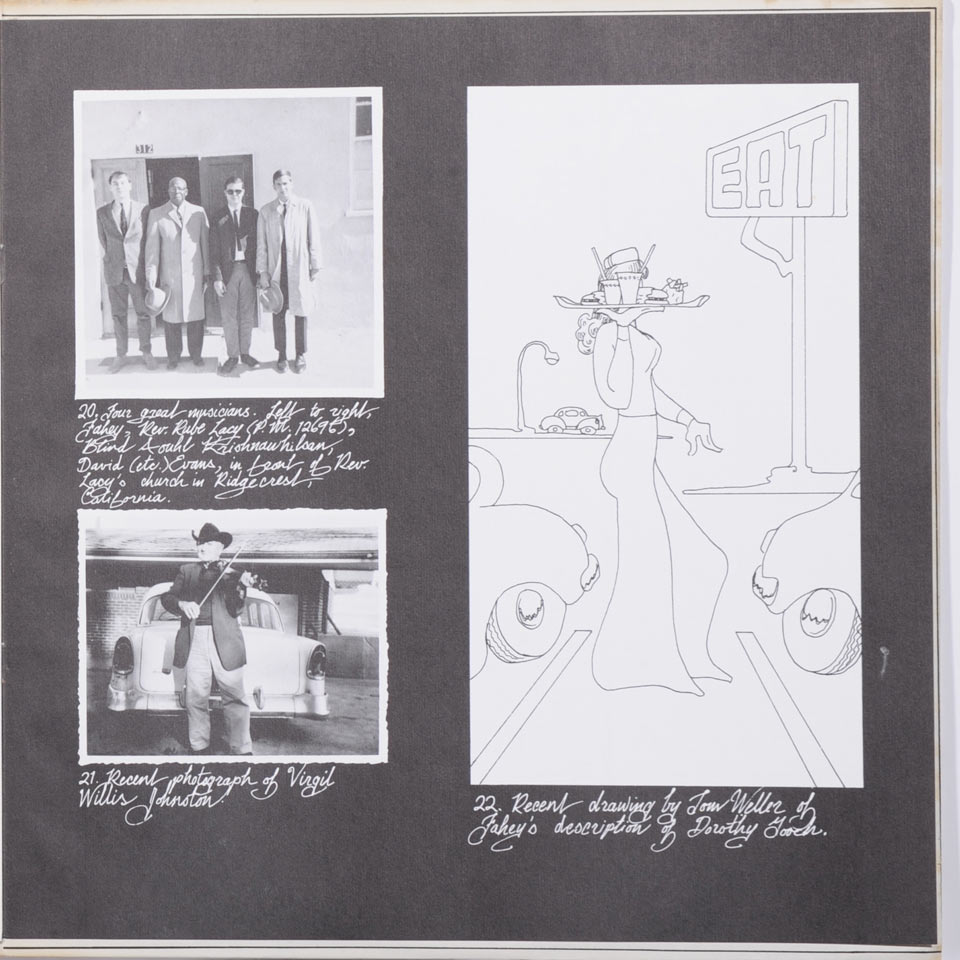 312
20. Four great musicians. Left to right,
Fahey, Rev. Rube Lacy (P.M. 12692),
Blind
David (etc.) Evans, in front of Rev.
Lacy's church in Ridgecrest,
California.
21. Recent photograph of Virgil
Willis Johnston.
EAT
22. Recent drawing by Tom Weller of
Fahey's description of Dorothy Gooch.